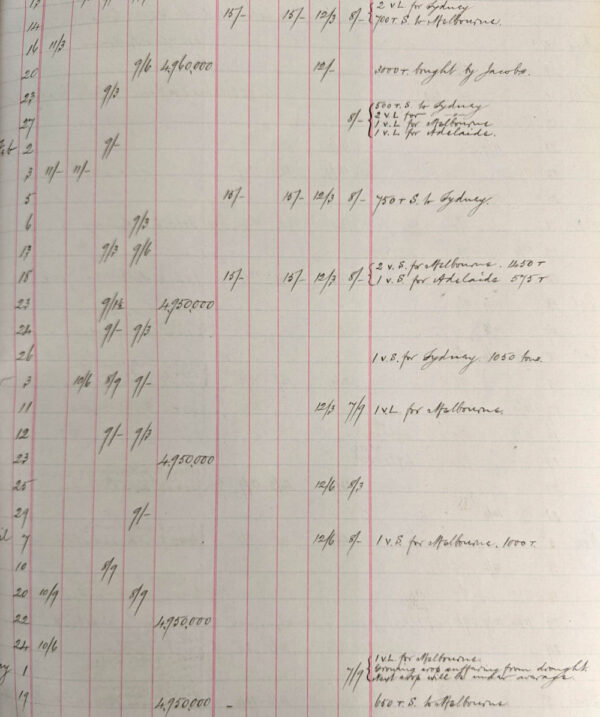 15/- 15/- 12/3 8/- 2 v.L for Sydney
14 700 T. S. to Melbourne.
16 11/3
20 9/6 4,960,000 12/- 3000 T. bought by Jacobs.
23 9/3
500 T. S. to Sydney
27 8/- 2 v.L for
1 v.L for Melbourne
1 v.L for Adelaide.
2 9/-
3 11/- 11/-
5 15/- 15/- 12/3 8/- 750 T S. to Sydney.
6 9/3
13 9/3 9/6
2 v.S. for Melbourne. 1450 T
18 15/- 15/- 12/3 8/- 1 v.S. for Adelaide 575 T
23 4,950,000
24 9/- 9/3
26 1 v.S. for Sydney 1050 tons.
3 10/6 8/9 9/-
11 12/3 7/9 1 v.L for Melbourne.
12 9/- 9/3
23 4,950,000
25 12/6 8/3
29 9/-
7 12/6 8/- 1 v.S. for Melbourne. 1000 T.
10 8/9
20 10/9 8/9
22 4,950,000
24 10/6
1 v.L for Melbourne.
1 7/9 Growing crop suffering from drought
Next crop will be under average.
19 4,950,000 - 650 T. S. to Melbourne